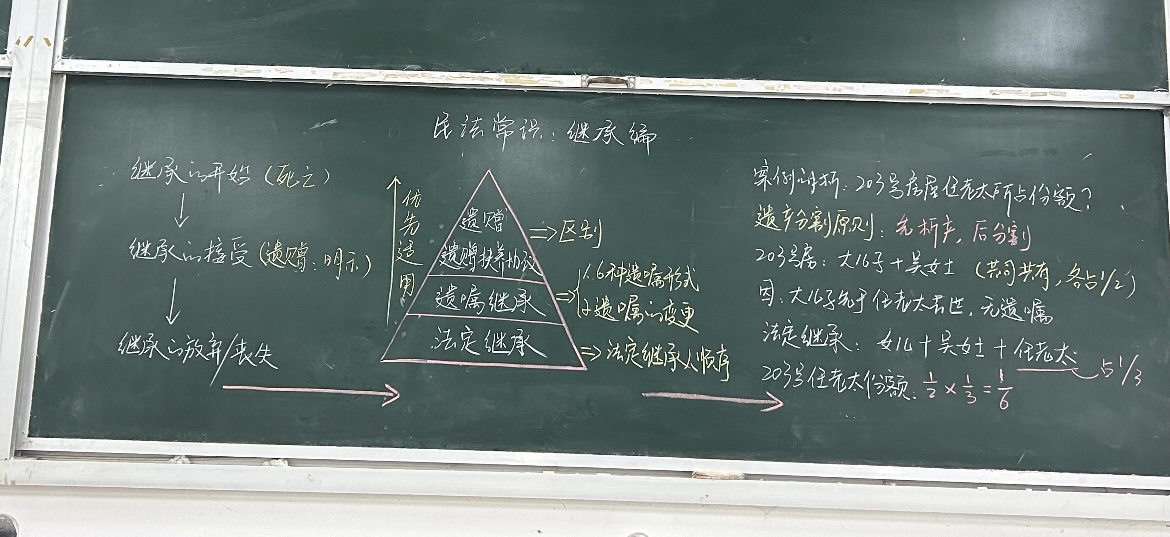 民法常识:继承编
继承的开始(死亡)
继承的接受(遗赠:明示)
继承的放弃/丧失
优先适用
遗赠
遗赠扶养协议
遗嘱继承
法定继承
⇒区别
⇒1.6种遗嘱形式
2.遗嘱的变更
⇒法定继承人顺序
案例评析:203号房屋任老太所占份额?
遗产分割原则:先析产,后分割
203号房:大儿子+吴女士(共同共有,各占1/2)
因:大儿子先于任老太去世,无遗嘱
法定继承:女儿+吴女士+任老太 占1/3
203号任老太份额:1/2×1/3=1/6